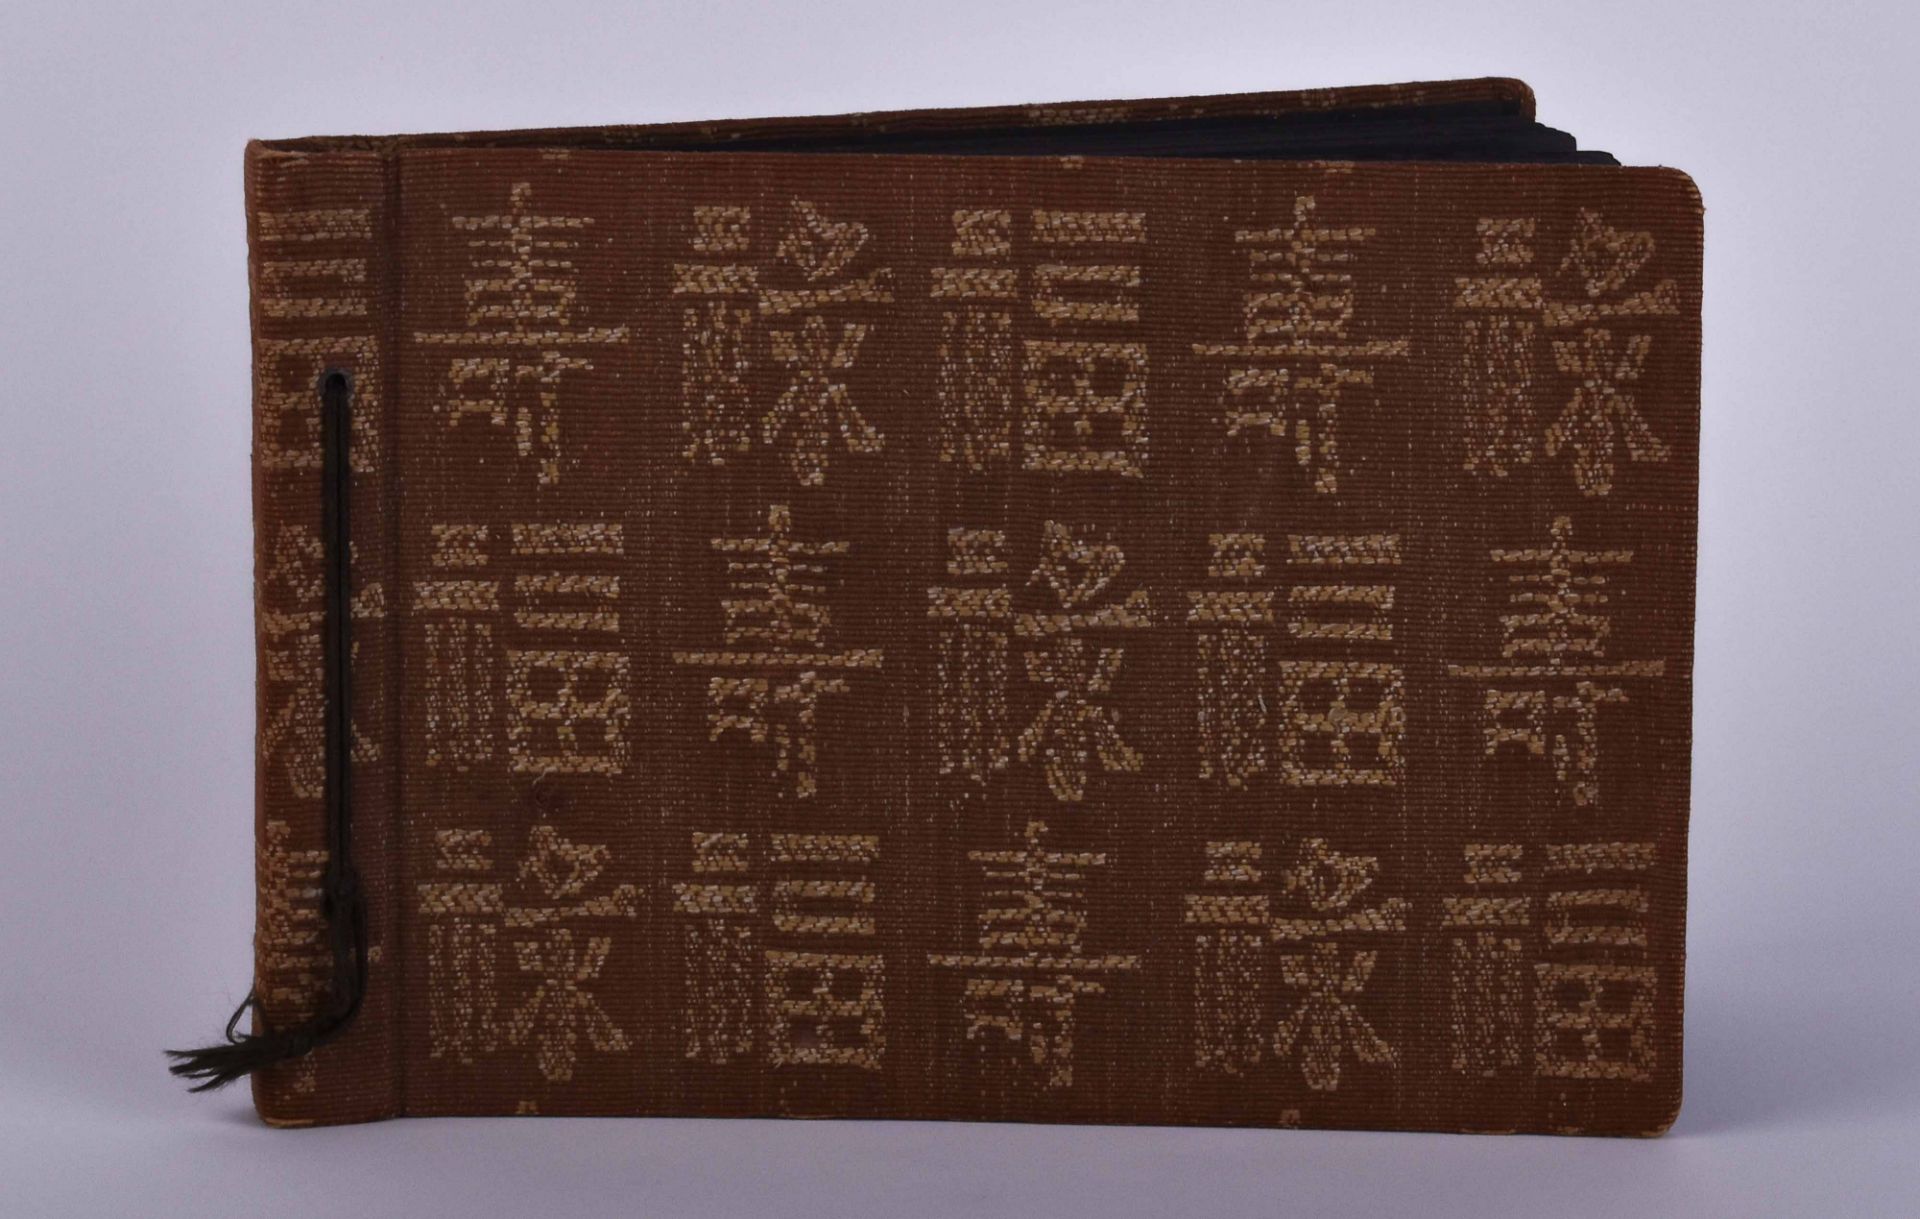 福壽祿福壽祿
祿福壽祿福壽
壽祿福壽祿福